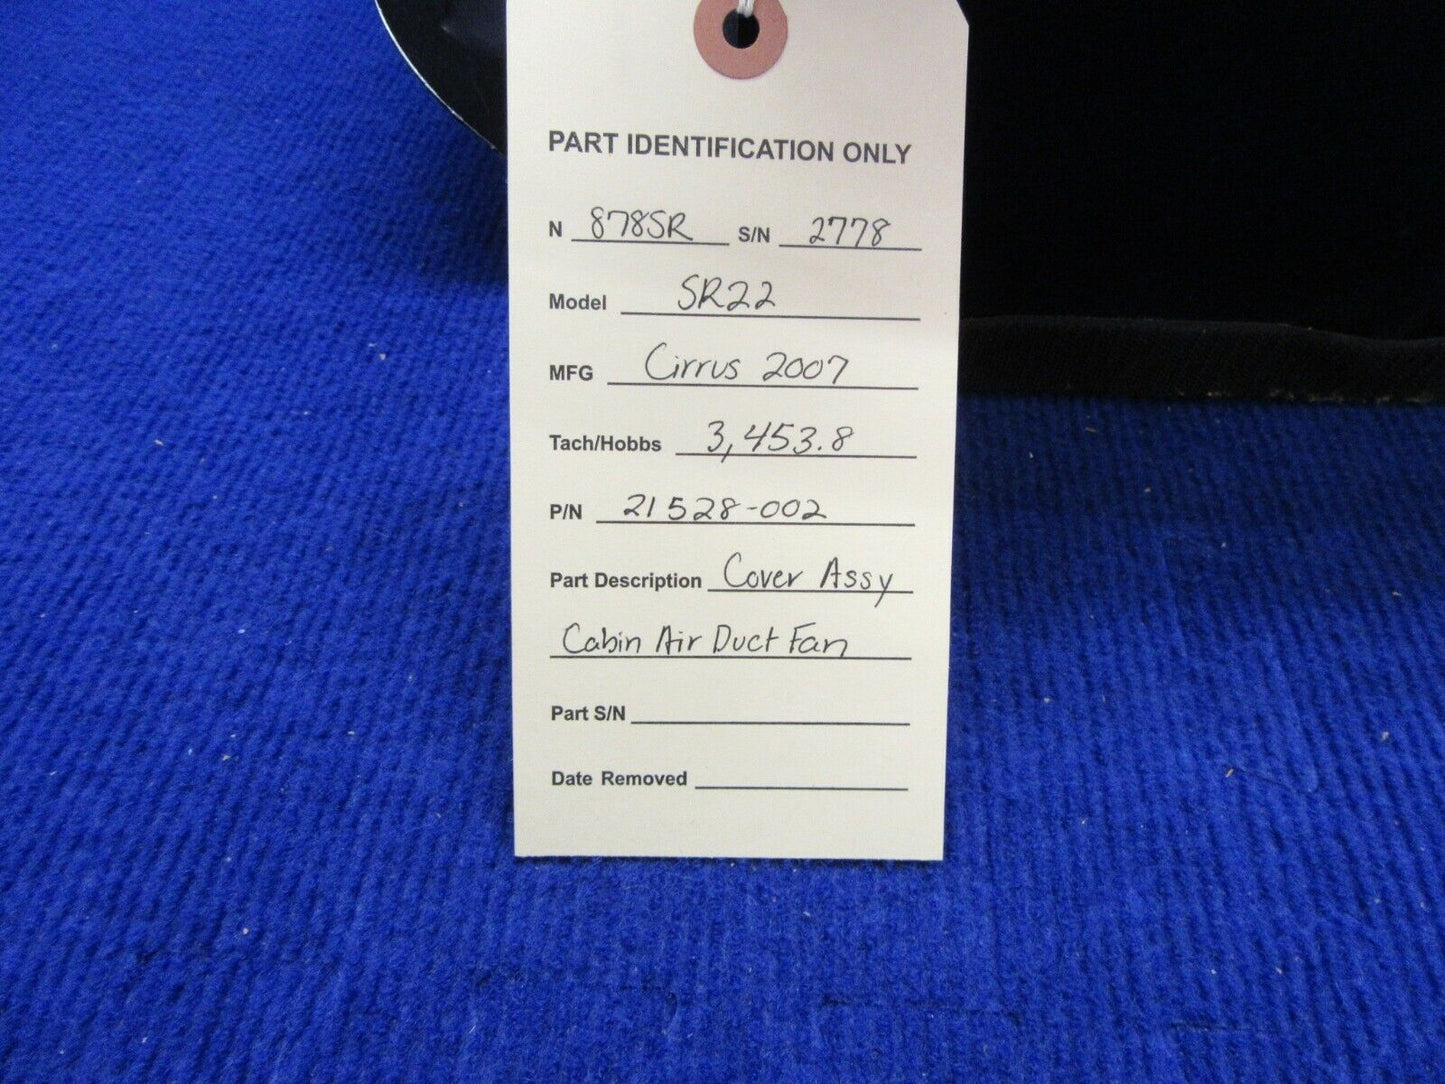 PART IDENTIFICATION ONLY
N 878SR S/N 2778
Model SR22
MFG Cirrus 2007
Tach/Hobbs 3,453.8
P/N 21528-002
Part Description Cover Assy
Cabin Air Duct Fan
Part S/N
Date Removed